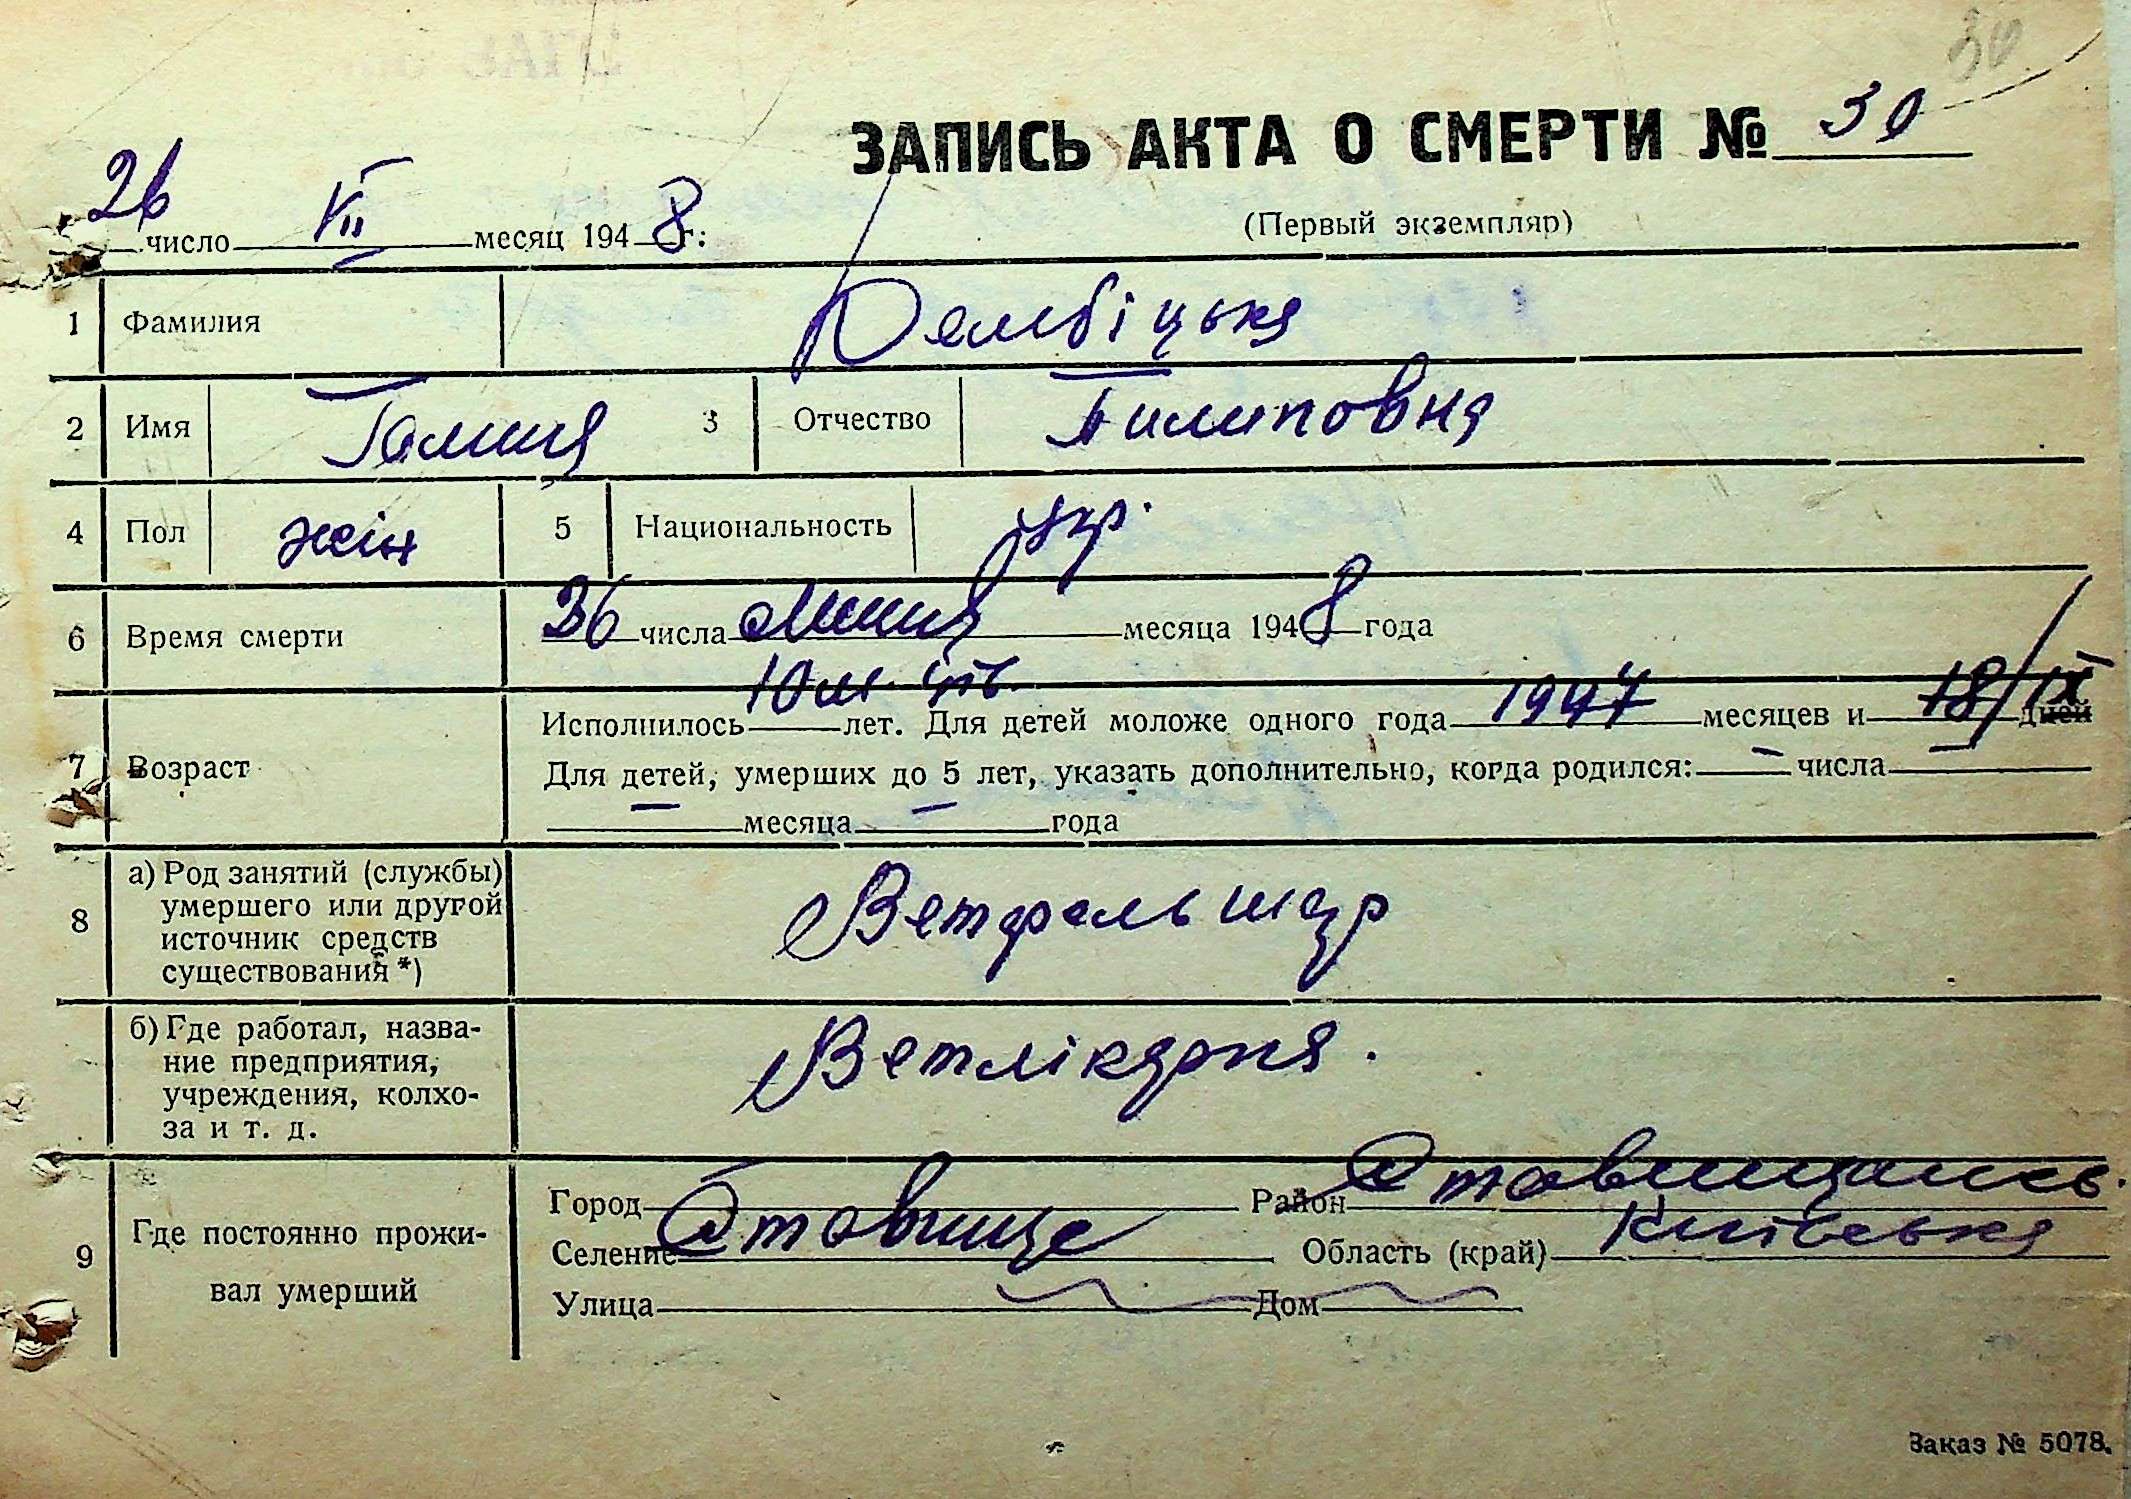 30
ЗАПИСЬ АКТА О СМЕРТИ № 30
26 число VII месяц 1948 г:
(Первый экземпляр)
1 Фамилия Дембіцька
2 Имя Галина 3 Отчество Пилиповна
4 Пол жін 5 Национальность укр.
6 Время смерти 26 числа Липня месяца 1948 года
10 м.
7 Возраст Исполнилось лет. Для детей моложе одного года 1947 месяцев и 18/IX дней
Для детей, умерших до 5 лет, указать дополнительно, когда родился: — числа —
— месяца — года
8 а) Род занятий (службы) умершего или другой источник средств существования *) Ветфельшар
б) Где работал, назва-
ние предприятия,
учреждения, колхо-
за и т. д. Ветлікарня.
9 Где постоянно прожи-
вал умерший
Город Район Ставищанск.
Селение Ставище Область (край) Київська
Улица Дом
Заказ № 5078.